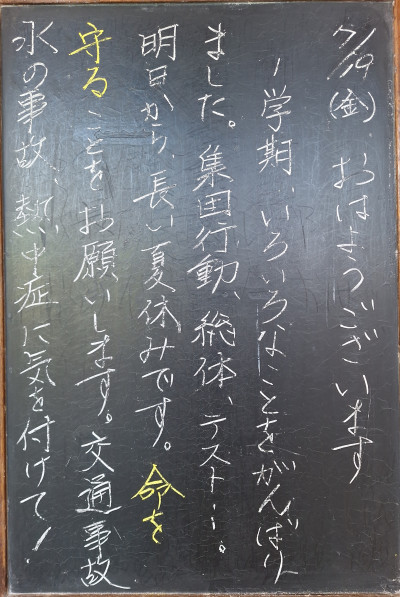 7/19(金) おはようございます
1学期、いろいろなことをがんばり
ました。集団行動、総体、テスト…。
明日から、長い夏休みです。命を
守ることをお願いします。交通事故
水の事故、熱中症に気を付けて!